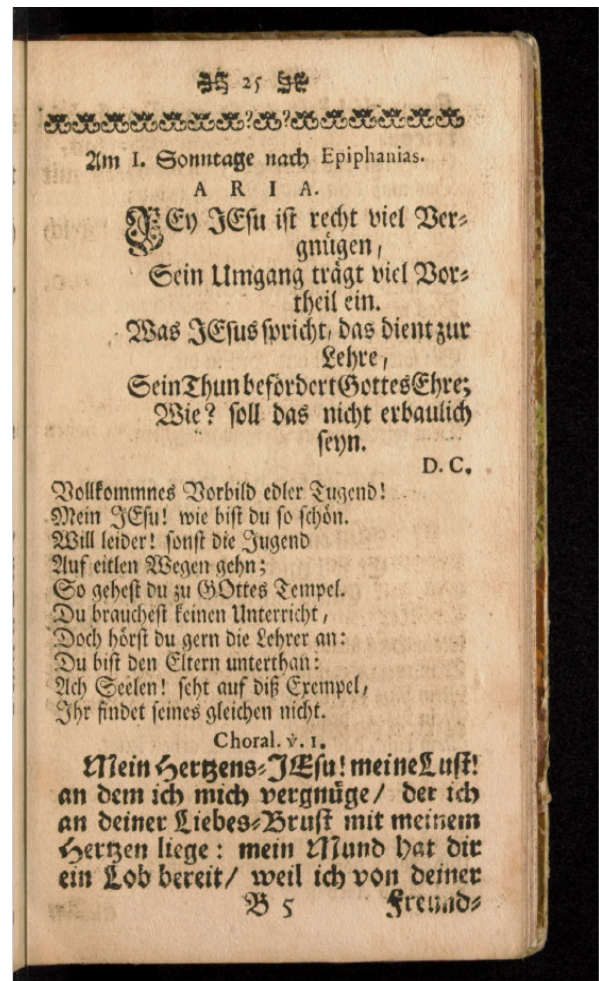 25
Am 1. Sonntage nach Epiphanias.
A R I A.
BEy JEsu ist recht viel Ver-
gnügen,
Sein Umgang trägt viel Vor-
theil ein.
Was JEsus spricht, das dient zur
Lehre,
Sein Thun befördert Gottes Ehre;
Wie? soll das nicht erbaulich
seyn.
D. C.
Vollkommnes Vorbild edler Tugend!
Mein JEsu! wie bist du so schön.
Will leider! sonst die Jugend
Auf eitlen Wegen gehn;
So gehest du zu GOttes Tempel.
Du brauchest keinen Unterricht,
Doch hörst du gern die Lehrer an:
Du bist den Eltern unterthan:
Ach Seelen! seht auf diß Exempel,
Ihr findet seines gleichen nicht.
Choral. v. 1.
Mein Hertzens-JEsu! meine Lust!
an dem ich mich vergnüge/ der ich
an deiner Liebes-Brust mit meinem
Hertzen liege: mein Mund hat dir
ein Lob bereit/ weil ich von deiner
B 5 Freund-